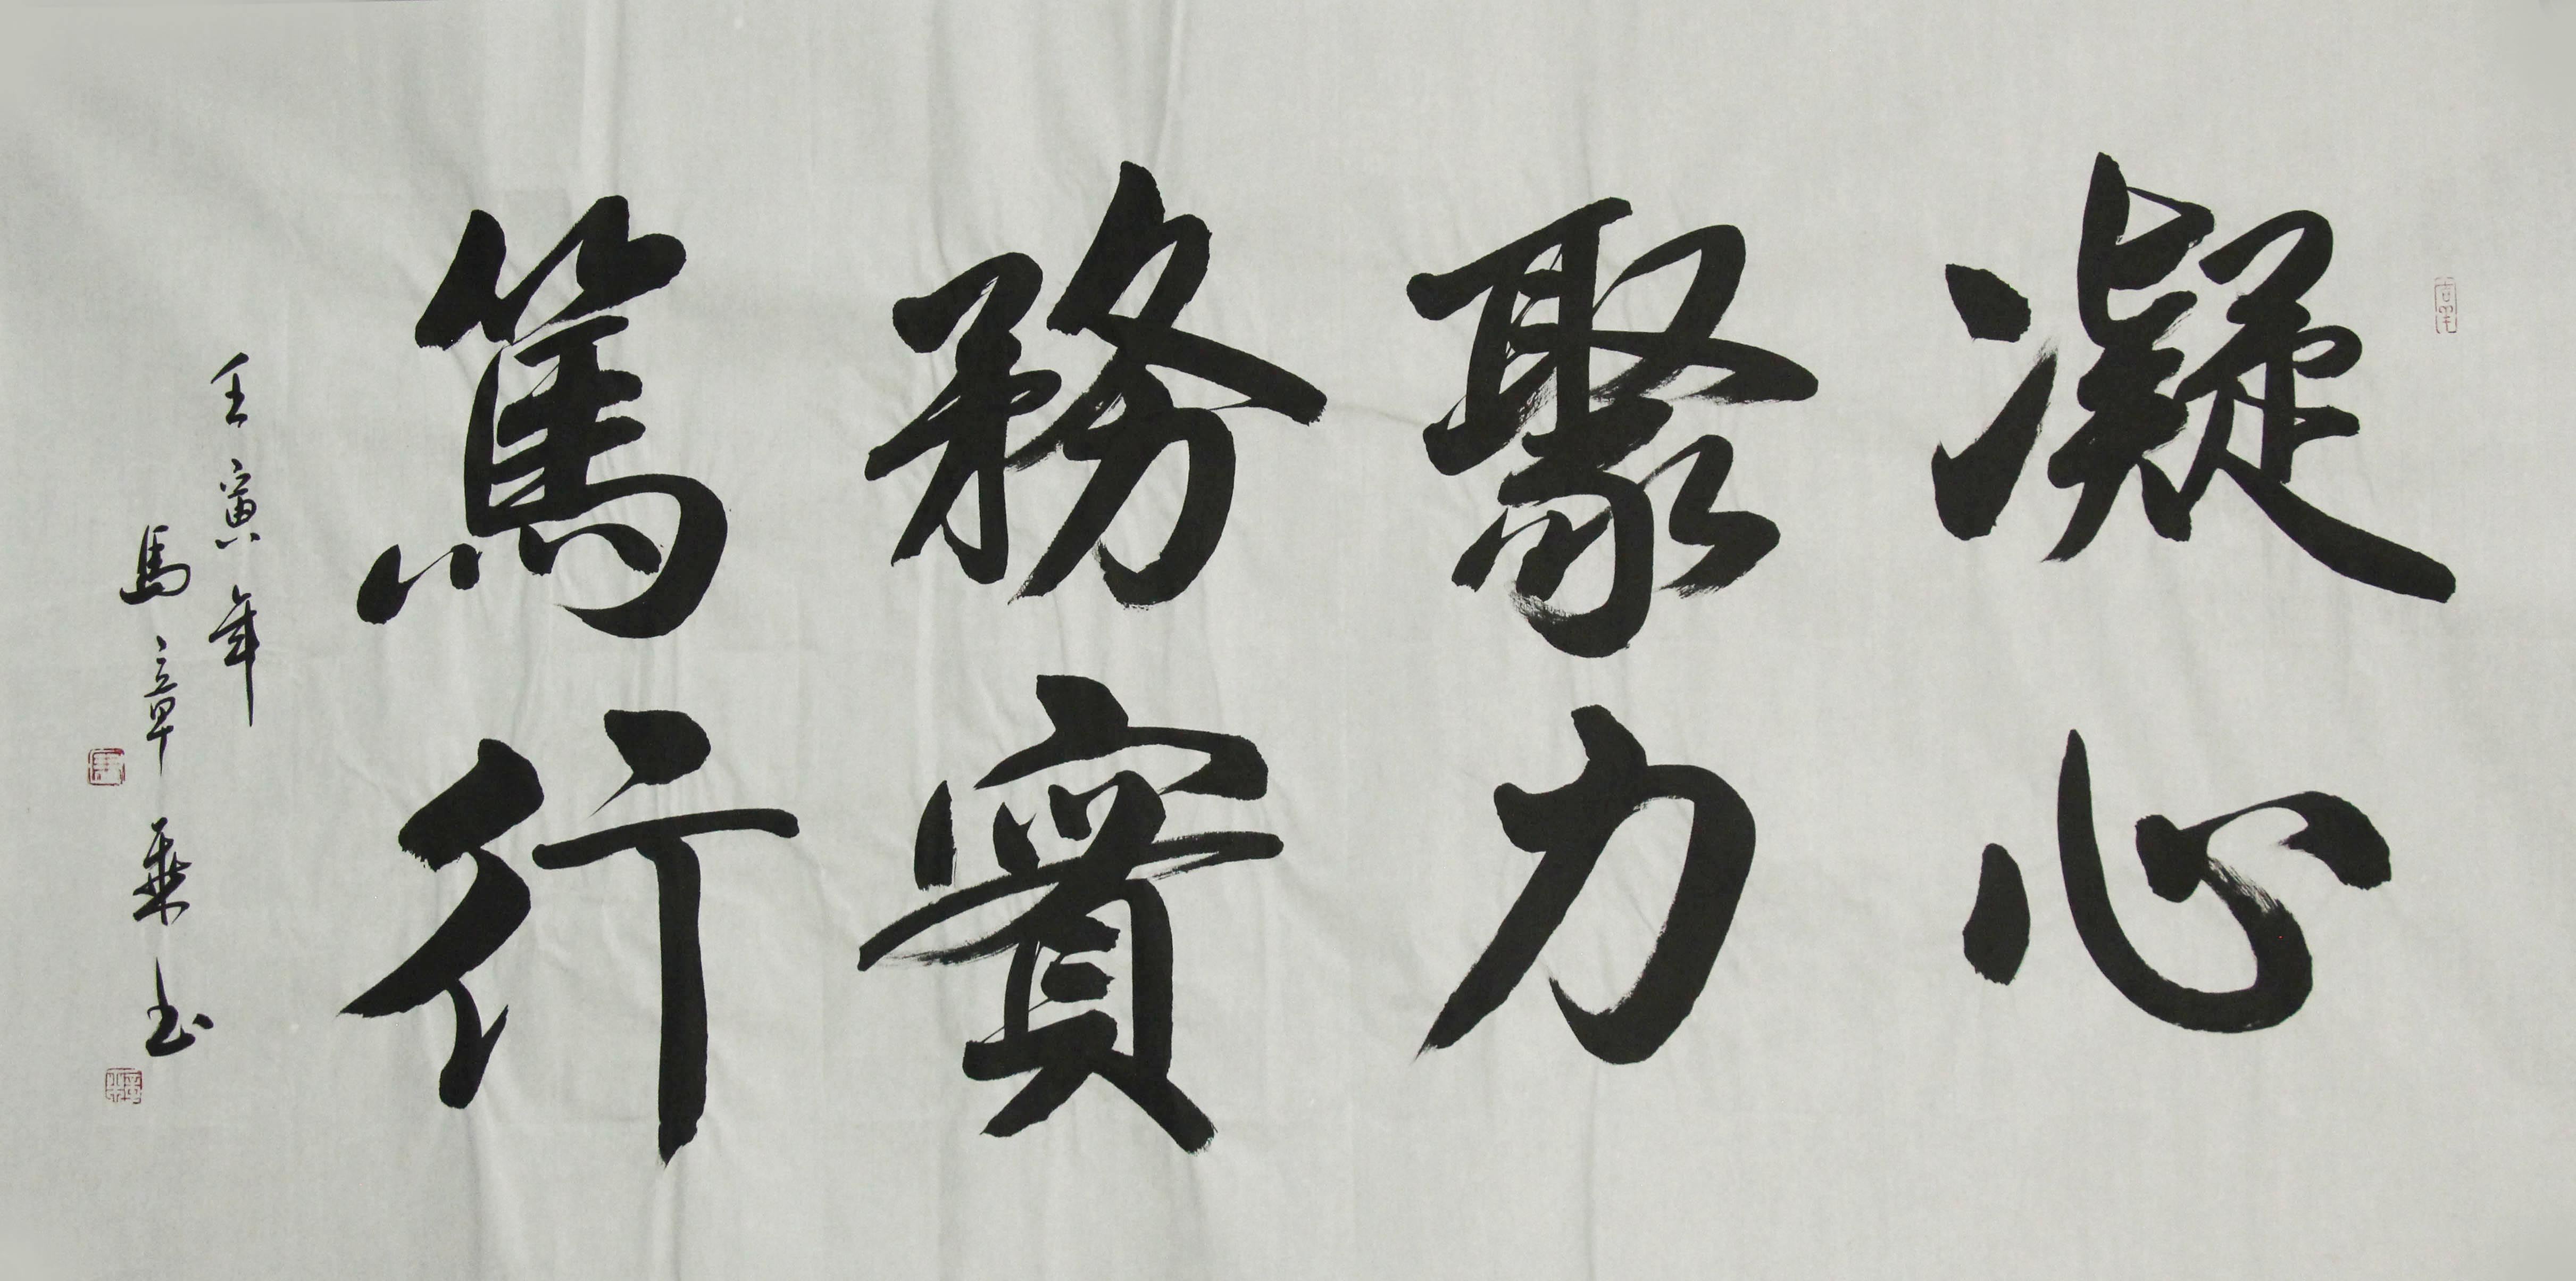 凝心
聚力
務實
篤行
壬寅年
馬章乘书